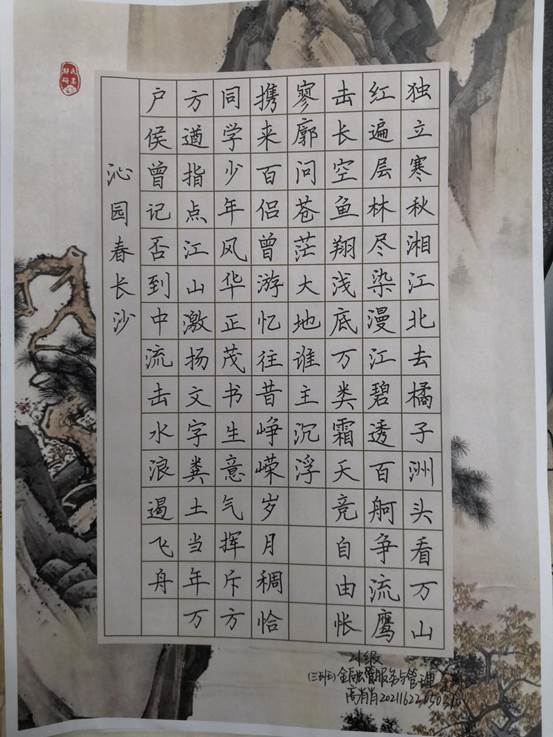 独立寒秋湘江北去橘子洲头看万山
红遍层林尽染漫江碧透百舸争流鹰
击长空鱼翔浅底万类霜天竞自由怅
寥廓问苍茫大地谁主沉浮
携来百侣曾游忆往昔峥嵘岁月稠恰
同学少年风华正茂书生意气挥斥方
方遒指点江山激扬文字粪土当年万
户侯曾记否到中流击水浪遏飞舟
沁园春长沙
21级
(三班) 金融服务与管理
周肖肖